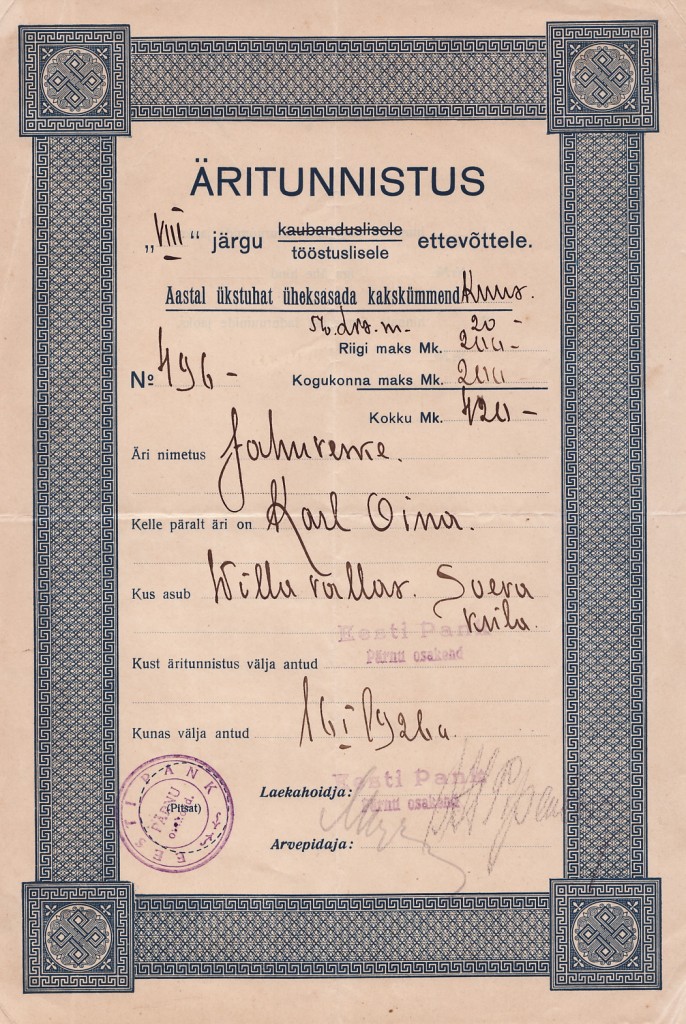 ÄRITUNNISTUS
„VIII“ järgu kaubanduslisele
tööstuslisele ettevõttele.
Aastal ükstuhat üheksasada kakskümmend Kuus.
20 -
Riigi maks Mk. 200 -
№ 496 -
Kogukonna maks Mk. 200
Kokku Mk. 420 -
Äri nimetus Jahuveske.
Kelle päralt äri on Karl Oina.
Kus asub Willa vallas. Soeva
küla.
Eesti Pank
Pärnu osakond
Kust äritunnistus välja antud
Kunas välja antud 16 I 1926 a.
EESTI PANK
PÄRNU
osakond.
(Pitsat)
Eesti Pank
Laekahoidja:
Pärnu osakond
Arvepidaja: